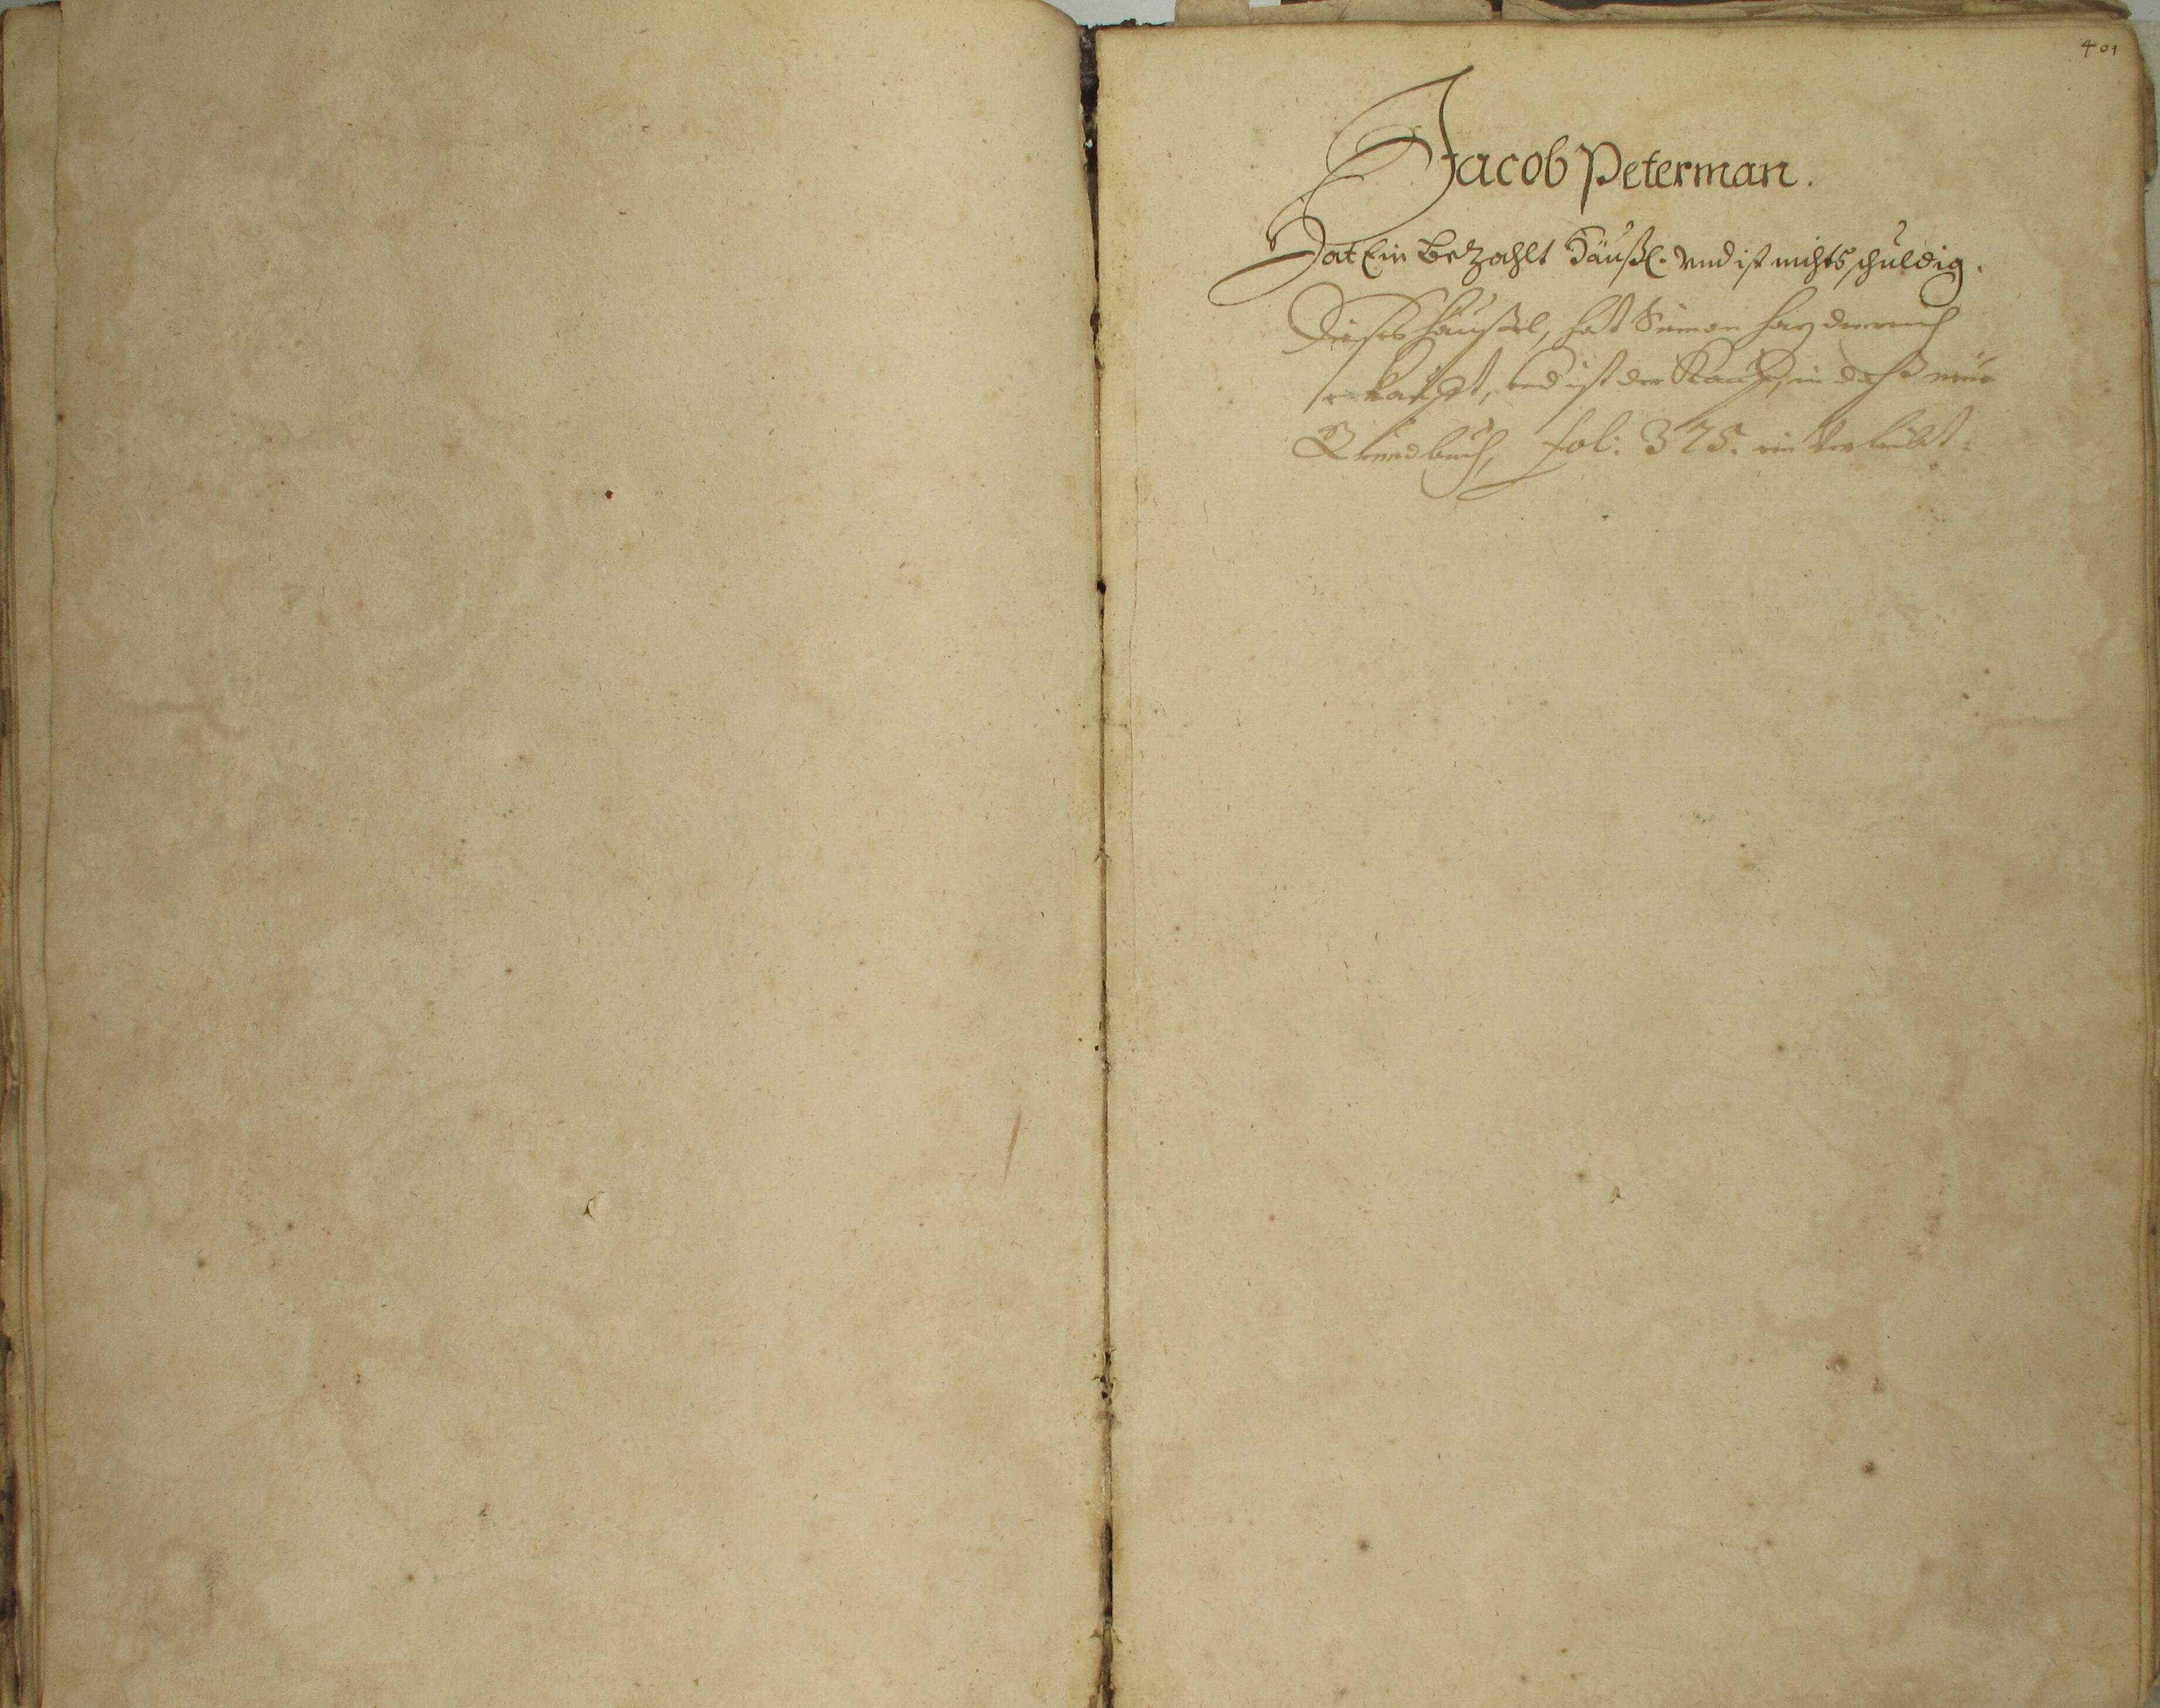 401
Jacob Peterman.
Hat Ein Bezahlt Häußl. vnd ist nichts schuldig.
Dieses häußel, hat Simon
erkaufft, vnd ist der Kauff, in daß neue
Grundbuch, fol: 375. ein Verleibt.